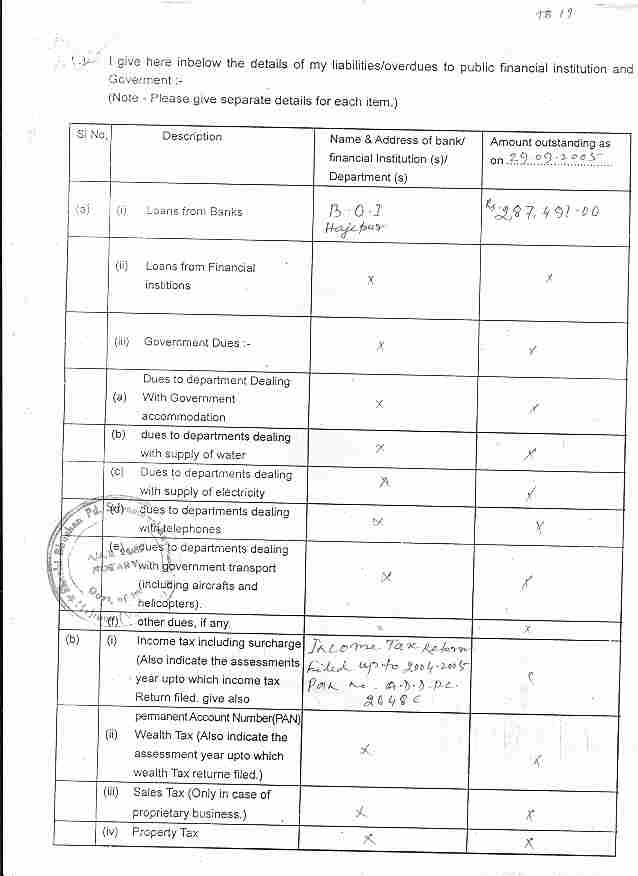 I give here inbelow the details of my liabilities/overdues to public financial institution and
Goverment :-
(Note - Please give separate details for each item.)
Sl No. Description Name & Address of bank/ Amount outstanding as
financial Institution (s)/ on 29.09.2005
Department (s)
(a) (i) Loans from Banks B-O-I Rs. 287,491-00
Hajipur
(ii) Loans from Financial
institions x x
(iii) Government Dues :- x x
Dues to department Dealing
(a) With Government x x
accommodation
(b) dues to departments dealing
with supply of water x x
(c) Dues to departments dealing
with supply of electricity x x
(d) dues to departments dealing
with telephones x x
(e) dues to departments dealing
with government transport
(including aircrafts and x x
helicopters).
(f) other dues, if any. x x
(b) (i) Income tax including surcharge Income Tax Return
(Also indicate the assessments filed up-to 2004-2005
year upto which income tax PAN No.
Return filed. give also 2648C
permanent Account Number(PAN)
(ii) Wealth Tax (Also indicate the
assessment year upto which x x
wealth Tax returne filed.)
(iii) Sales Tax (Only in case of
proprietary business.) x x
(iv) Property Tax x x
NOTARY